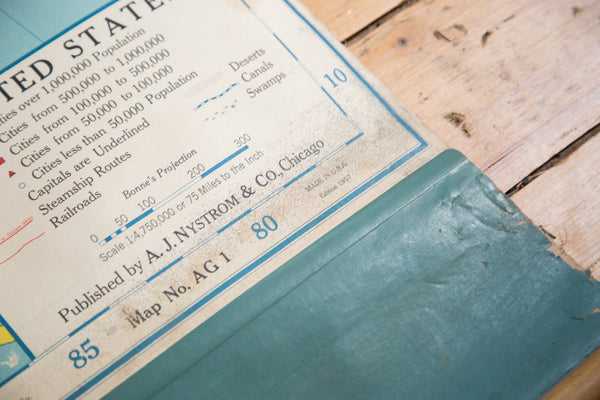 TED STATES
ties over 1,000,000 Population
Cities from 500,000 to 1,000,000
Cities from 100,000 to 500,000
Cities from 50,000 to 100,000
Cities less than 50,000 Population
Capitals are Underlined
Steamship Routes
Railroads
Deserts
Canals
Swamps
10
Bonne's Projection
0 50 100 200 300
Scale 1:4,750,000 or 75 Miles to the Inch
Published by A. J. NYSTROM & CO., Chicago
MADE IN U.S.A.
Edition 1957
Map No. AG 1
85
80